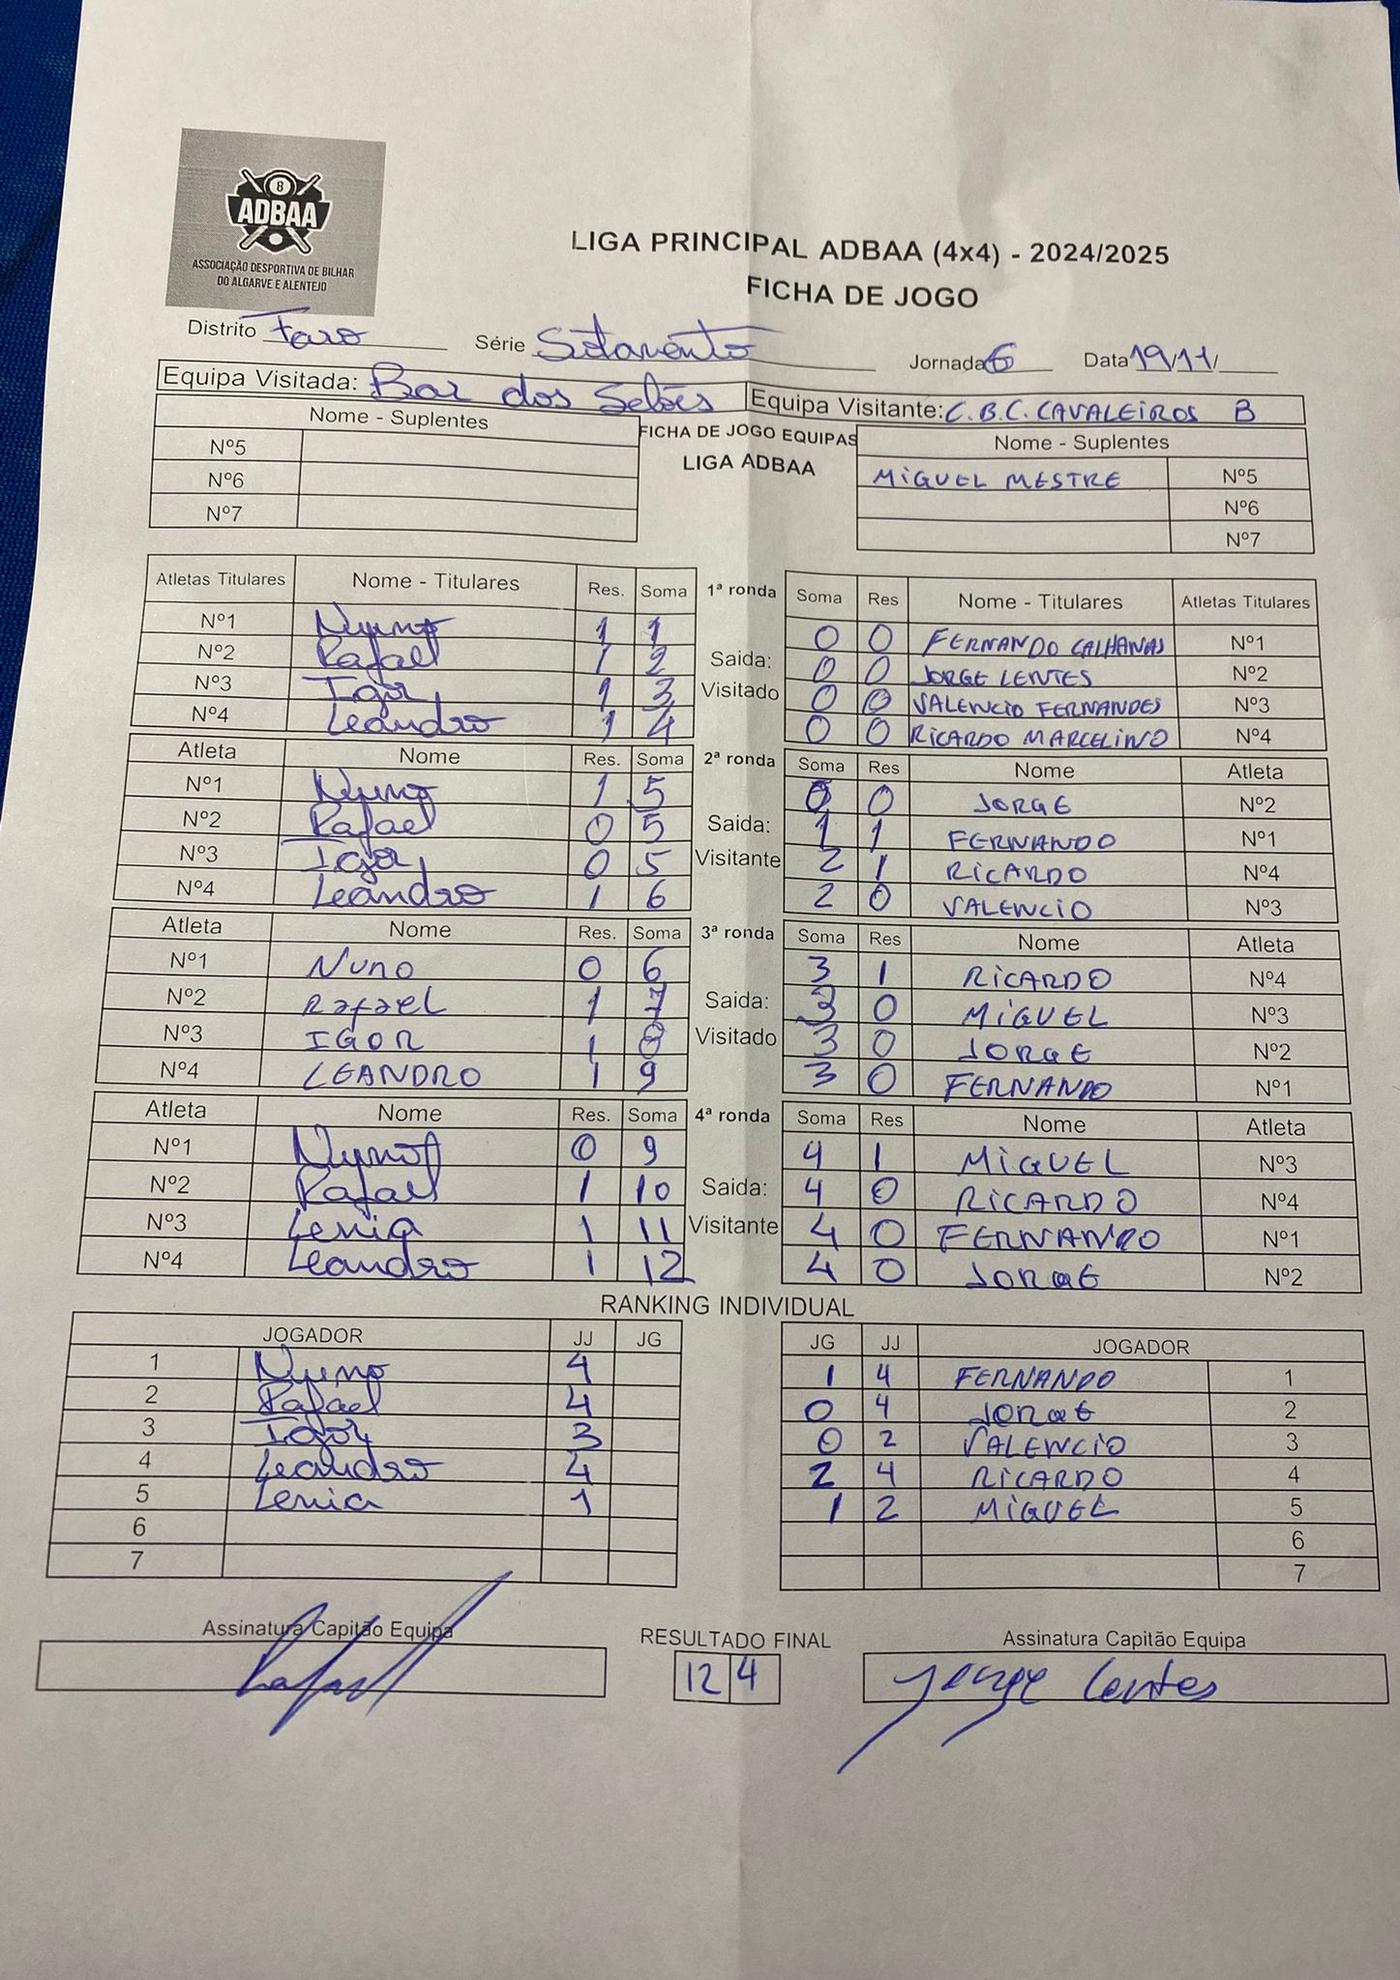 8
ADBAA
ASSOCIAÇÃO DESPORTIVA DE BILHAR
DO ALGARVE E ALENTEJO
LIGA PRINCIPAL ADBAA (4x4) - 2024/2025
FICHA DE JOGO
Distrito Faro Série Sotavento Jornada 6 Data 19/11/
Equipa Visitada: Bar dos Selões Equipa Visitante: C.B.C. CAVALEIROS B
Nome - Suplentes FICHA DE JOGO EQUIPAS Nome - Suplentes
Nº5 LIGA ADBAA MIGUEL MESTRE Nº5
Nº6 Nº6
Nº7 Nº7
Atletas Titulares Nome - Titulares Res. Soma 1ª ronda Soma Res Nome - Titulares Atletas Titulares
Nº1 Nuno 1 1 0 0 FERNANDO CALHANAS Nº1
Nº2 Rafael 1 2 Saida: 0 0 JORGE LENTES Nº2
Nº3 Igor 1 3 Visitado 0 0 VALENCIO FERNANDES Nº3
Nº4 Leandro 1 4 0 0 RICARDO MARCELINO Nº4
Atleta Nome Res. Soma 2ª ronda Soma Res Nome Atleta
Nº1 Nuno 1 5 0 0 JORGE Nº2
Nº2 Rafael 0 5 Saida: 1 1 FERNANDO Nº1
Nº3 Igor 0 5 Visitante 2 1 RICARDO Nº4
Nº4 Leandro 1 6 2 0 VALENCIO Nº3
Atleta Nome Res. Soma 3ª ronda Soma Res Nome Atleta
Nº1 Nuno 0 6 3 1 RICARDO Nº4
Nº2 Rafael 1 7 Saida: 3 0 MIGUEL Nº3
Nº3 IGOR 1 8 Visitado 3 0 JORGE Nº2
Nº4 LEANDRO 1 9 3 0 FERNANDO Nº1
Atleta Nome Res. Soma 4ª ronda Soma Res Nome Atleta
Nº1 Nuno 0 9 4 1 MIGUEL Nº3
Nº2 Rafael 1 10 Saida: 4 0 RICARDO Nº4
Nº3 Lenia 1 11 Visitante 4 0 FERNANDO Nº1
Nº4 Leandro 1 12 4 0 JORGE Nº2
RANKING INDIVIDUAL
JOGADOR JJ JG JG JJ JOGADOR
1 Nuno 4 1 4 FERNANDO 1
2 Rafael 4 0 4 JORGE 2
3 Igor 3 0 2 VALENCIO 3
4 Leandro 4 2 4 RICARDO 4
5 Lenia 1 1 2 MIGUEL 5
6 6
7 7
Assinatura Capitão Equipa RESULTADO FINAL Assinatura Capitão Equipa
Rafael 12 4 Jorge Lentes